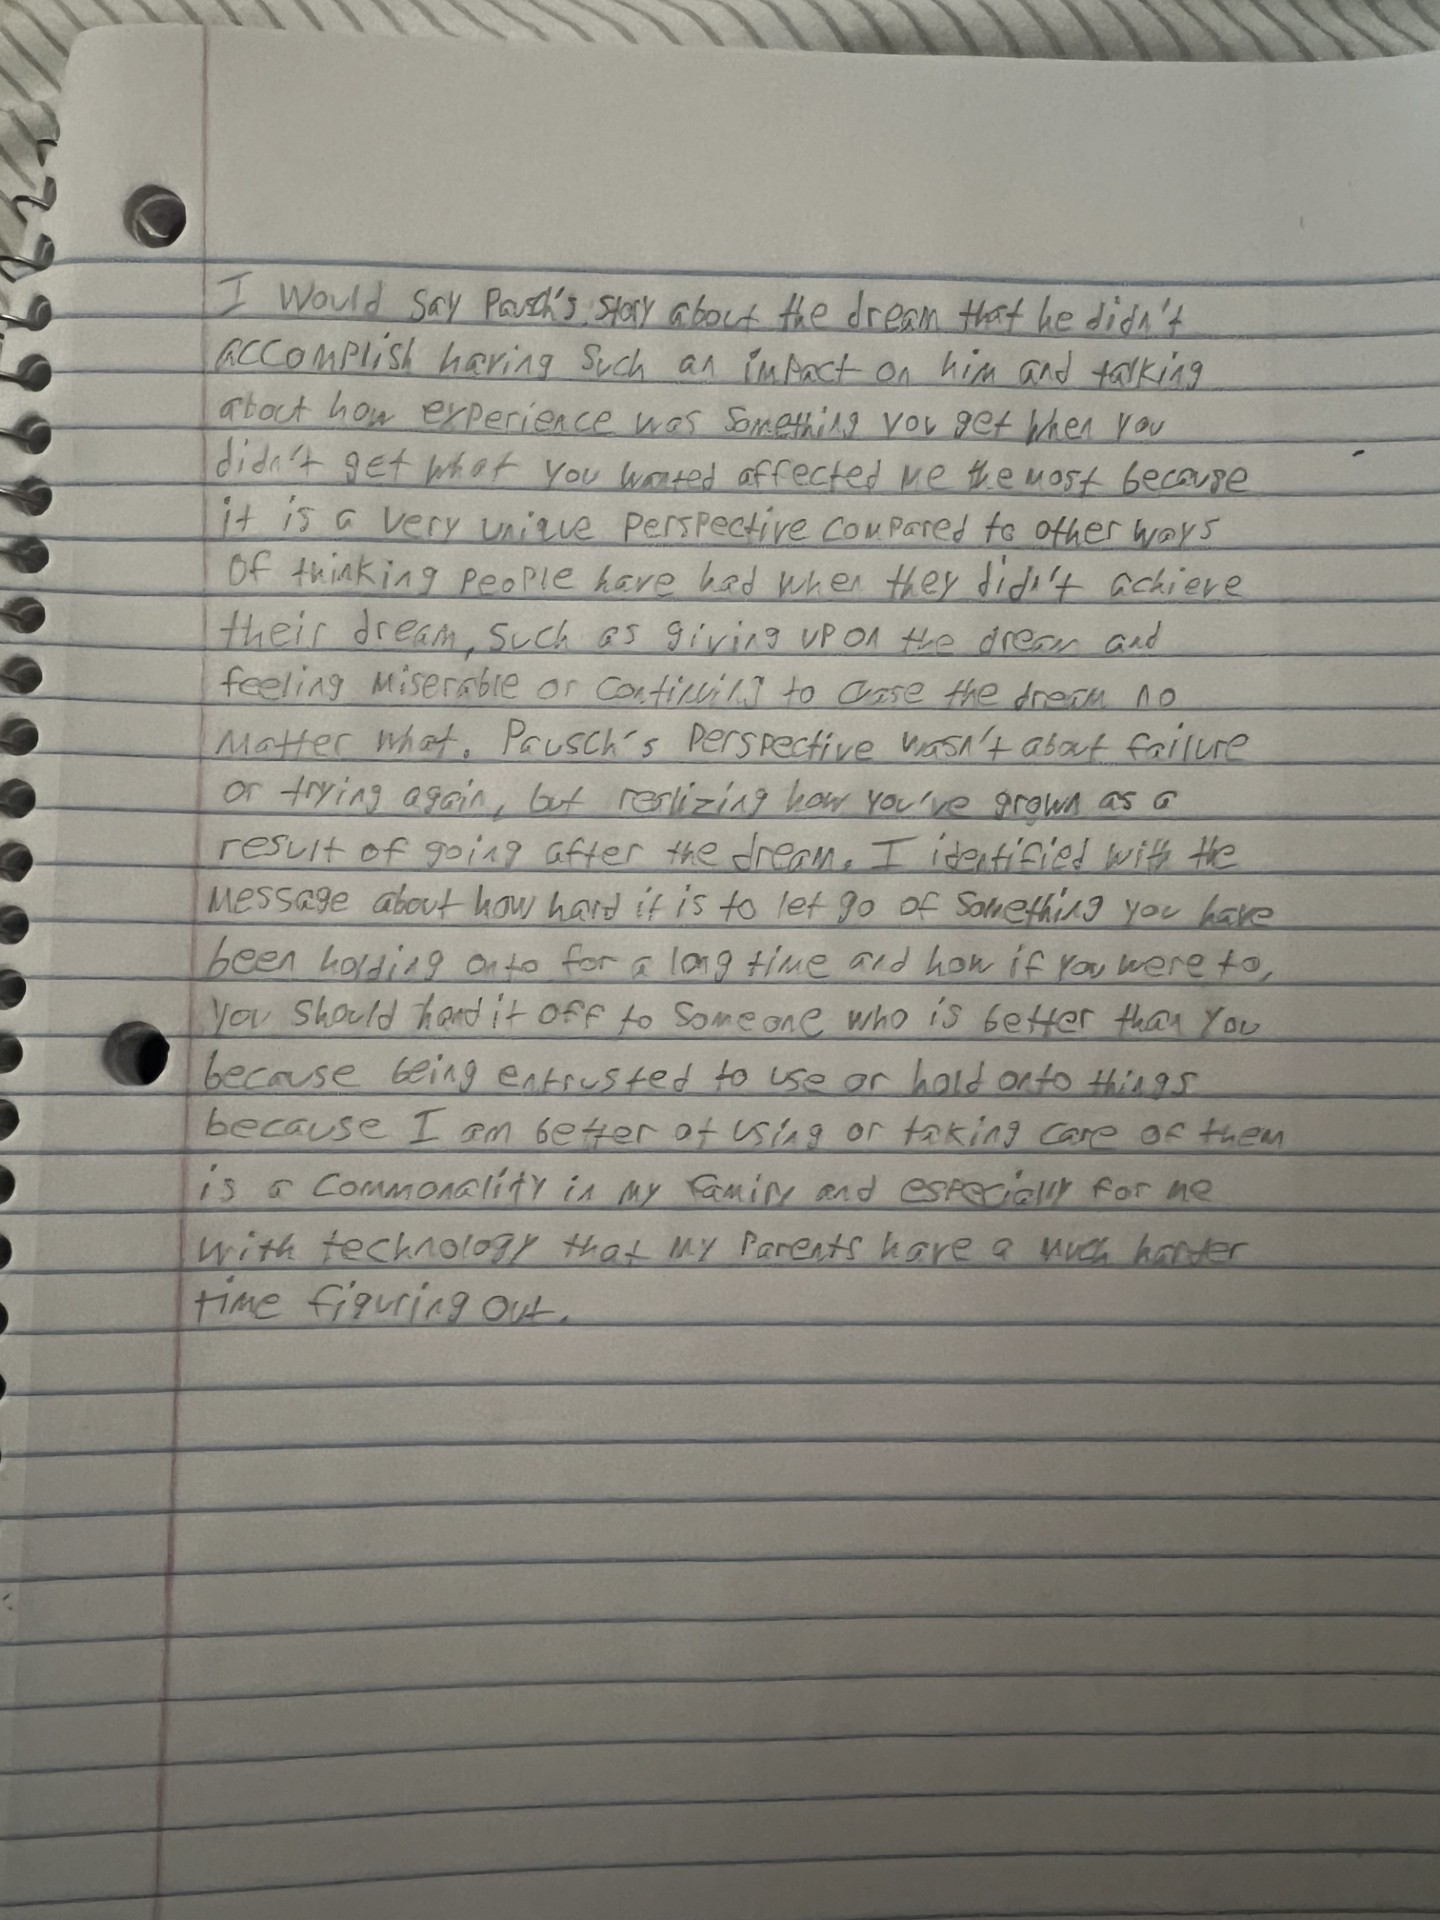 I would say Pausch's story about the dream that he didn't
accomplish having such an impact on him and talking
about how experience was something you get when you
didn't get what you wanted affected me the most because
it is a very unique perspective compared to other ways
of thinking people have had when they didn't achieve
their dream, such as giving up on the dream and
feeling miserable or continuing to chase the dream no
matter what. Pausch's perspective wasn't about failure
or trying again, but realizing how you've grown as a
result of going after the dream. I identified with the
message about how hard it is to let go of something you have
been holding onto for a long time and how if you were to,
you should hand it off to someone who is better than you
because being entrusted to use or hold onto things
because I am better at using or taking care of them
is a commonality in my family and especially for me
with technology that my parents have a much harder
time figuring out.